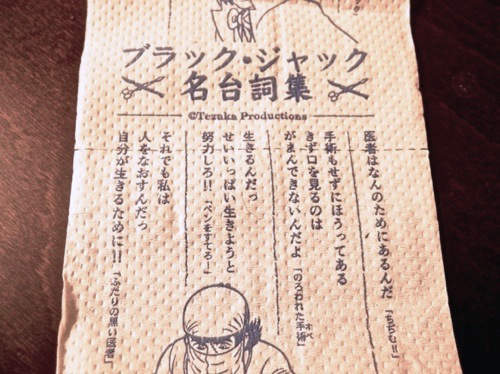 ブラック・ジャック
名台詞集
©Tezuka Productions
医者はなんのためにあるんだ「ちぢむ!!」
手術もせずにほうってある
きず口を見るのは
がまんできないんだよ「のろわれた手術オペ」
生きるんだっ
せいいっぱい生きようと
努力しろ!!「ペンをすてろ!」
それでも私は
人をなおすんだっ
自分が生きるために!!「ふたりの黒い医者」